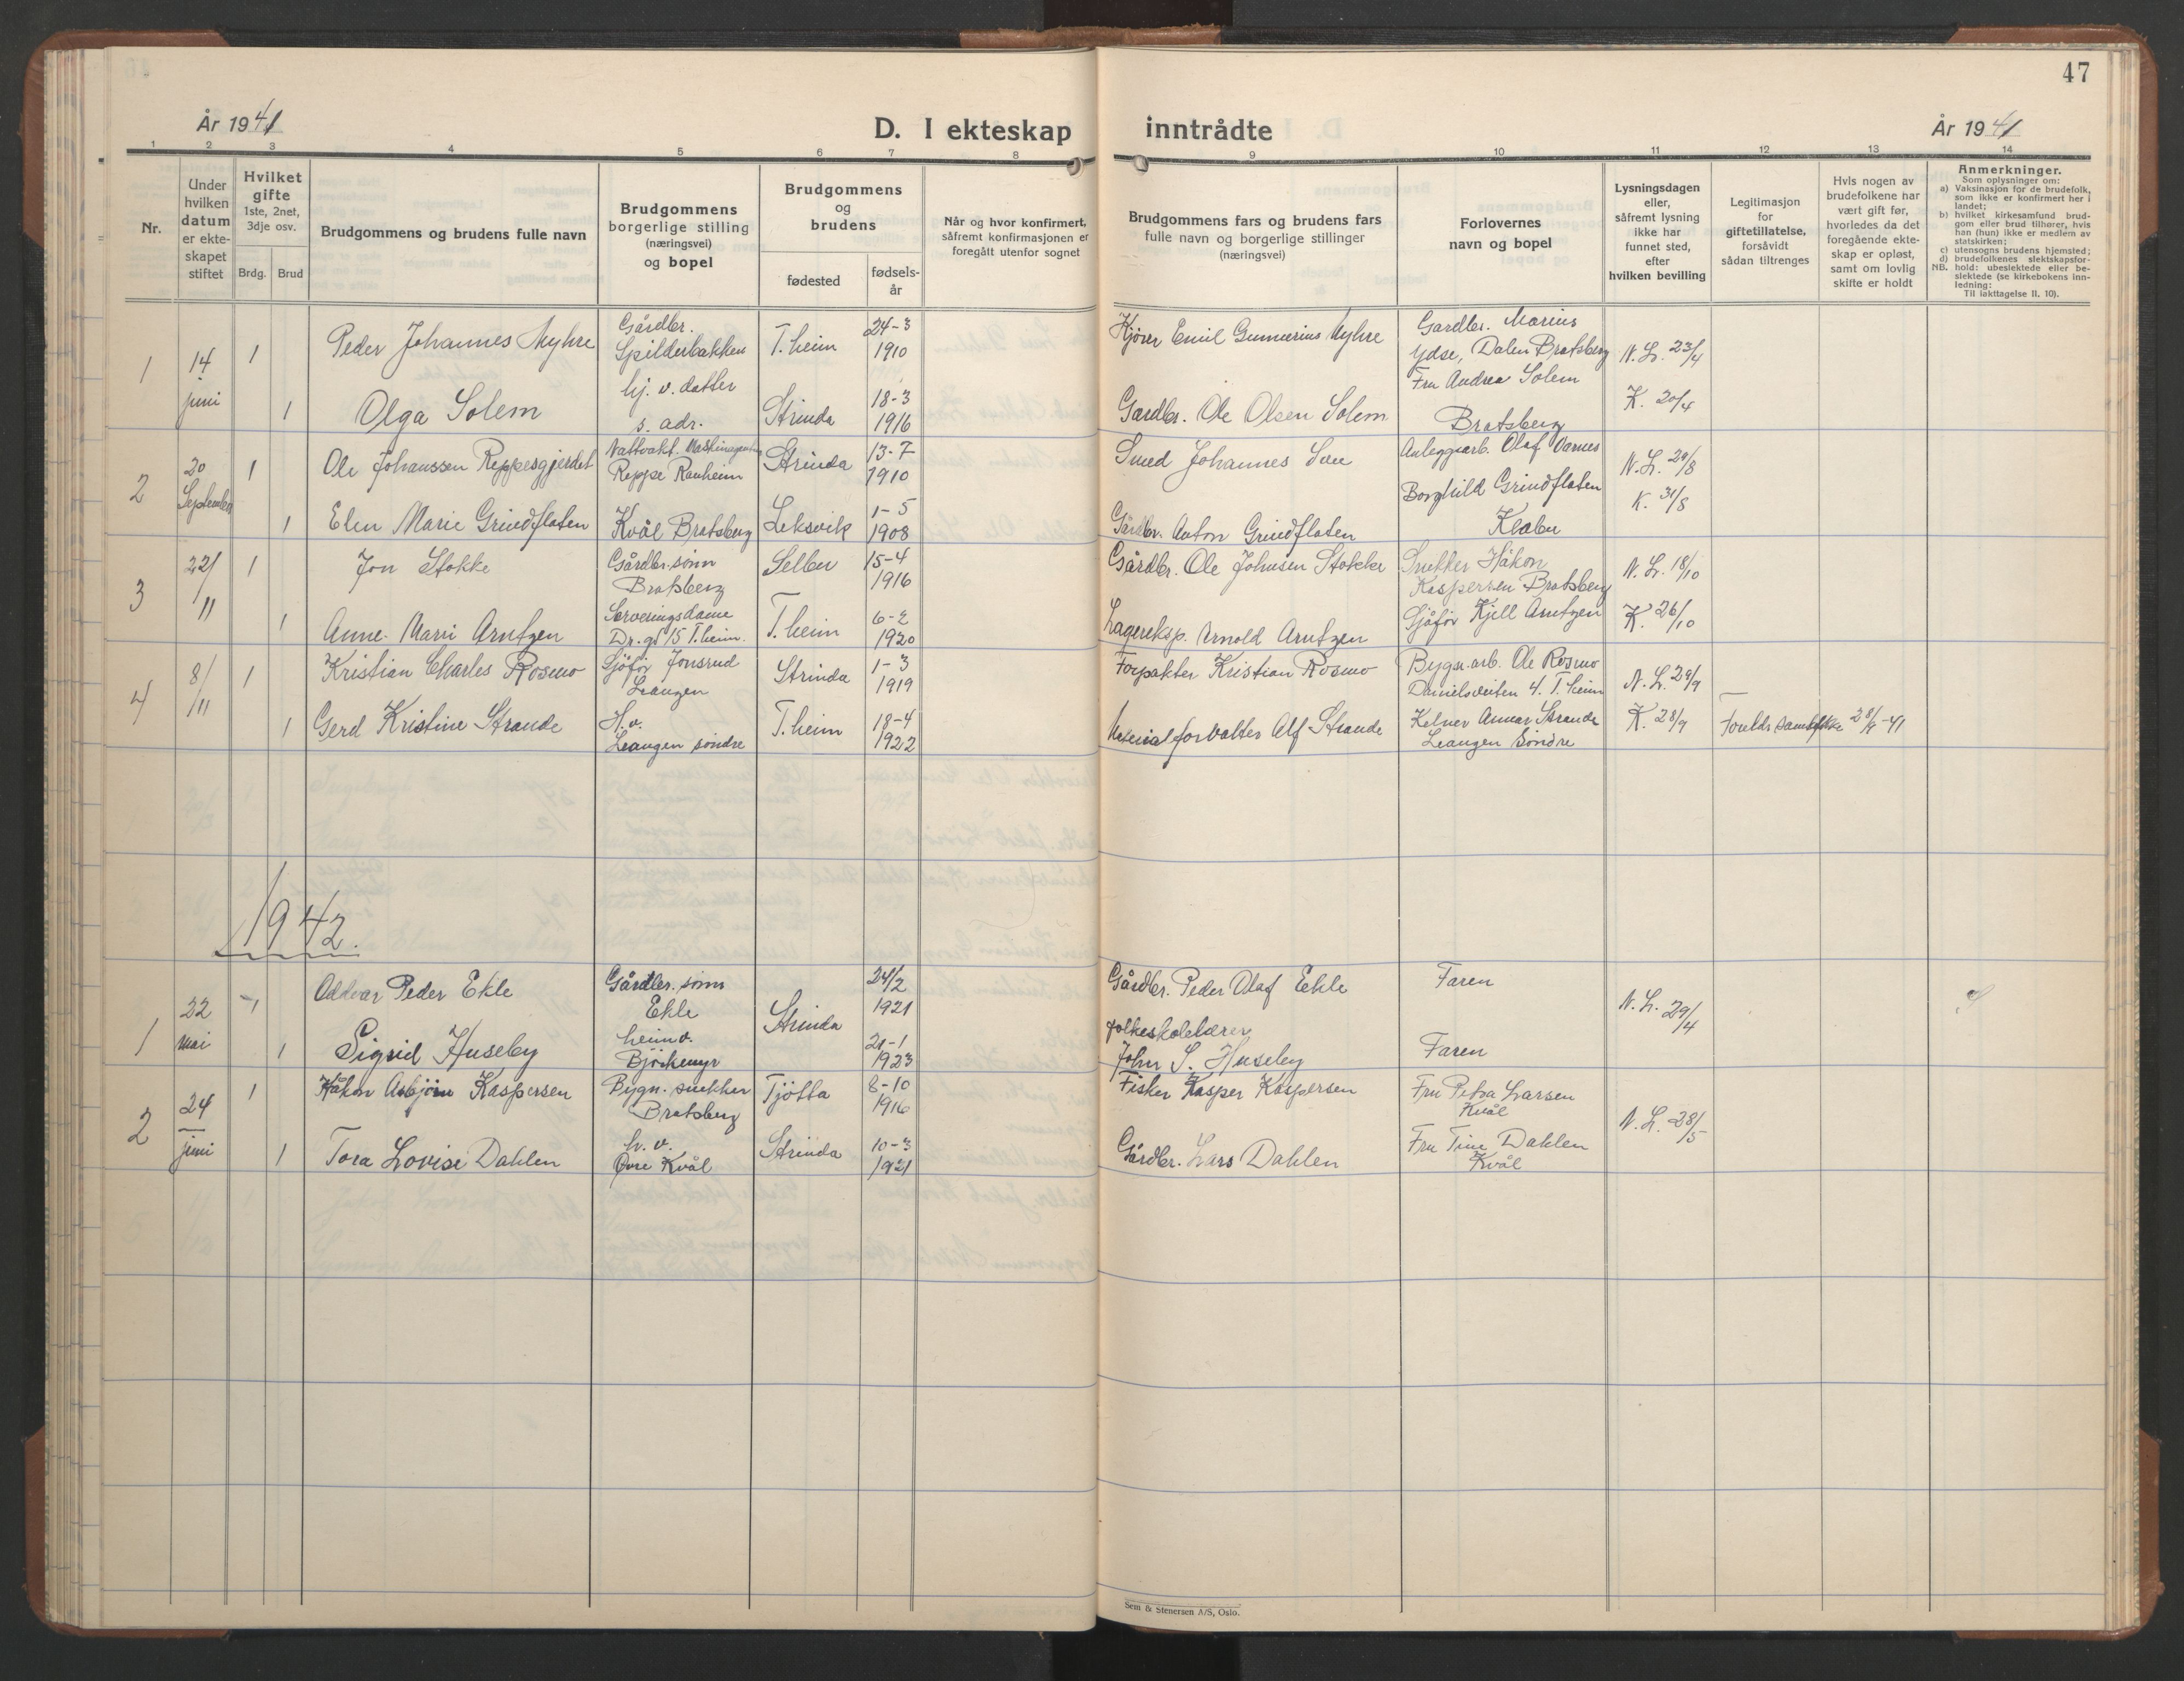 47
År 1941
D. I ekteskap inntrådte
År 1941
1 2 3 4 5 6 7 8 9 10 11 12 13 14
Nr.
Under hvilken datum er ekteskapet stiftet
Hvilket gifte
1ste, 2net, 3dje osv.
Brdg. Brud
Brudgommens og brudens fulle navn
Brudgommens borgerlige stilling (næringsvei) og bopel
Brudgommens og brudens
fødested
fødselsår
Når og hvor konfirmert, såfremt konfirmasjonen er foregått utenfor sognet
Brudgommens fars og brudens fars fulle navn og borgerlige stillinger (næringsvei)
Forlovernes navn og bopel
Lysningsdagen eller, såfremt lysning ikke har funnet sted, efter hvilken bevilling
Legitimasjon for giftetillatelse, forsåvidt sådan tiltrenges
Hvis nogen av brudefolkene har vært gift før, hvorledes da det foregående ekteskap er opløst, samt om lovlig skifte er holdt
Anmerkninger.
Som oplysninger om:
a) Vaksinasjon for de brudefolk, som ikke er konfirmert her i landet;
b) hvilket kirkesamfund brudgom eller brud tilhører, hvis han (hun) ikke er medlem av statskirken;
c) utensogns brudens hjemsted;
d) brudefolkenes slektskapsforhold: ubeslektede eller beslektede (se kirkebokens innledning:
NB. Til iakttagelse II. 10).
1 14 juni 1 Peder Johannes Myhre Gårdbr. Spilderbakken T.heim 24-3 1910 Kjører Emil Gunnerius Myhre Gardbr. Marius Ydse, Dalen Bratsberg N. L. 23/4
1 Olga Solem hj. v. datter s. adr. Strinda 18-3 1916 Gardbr. Ole Olsen Solem Fru Andrea Solem Bratsberg K. 20/4
2 20 September 1 Ole Johanssen Reppesgjerdet Nattvakt. Reppe Ranheim Strinda 13-7 1910 Smed Johannes Anleggsarb. Olaf N. L. 29/8
1 Elen Marie Grindflaten Kvål Bratsberg Leksvik 1-5 1908 Gårdbr. Anton Grindflaten Borghild Grindflaten Klæbu K. 31/8
3 22/11 1 Jon Stokke Gårdbr. sønn Bratsberg Selbu 15-4 1916 Gårdbr. Ole Johnsen Stokke Snekker Håkon Kaspersen Bratsberg N. L. 18/10
1 Anne-Marri Arntzen Serveringsdame Dr. gt 15 T.heim. T.heim 6-2 1920 Lagereksp. Arnold Arntzen Sjåfør Kjell Arntzen K. 26/10
4 8/11 1 Kristian Charles Rosmo Sjåfør Jonsrud Leangen Strinda 1-3 1919 Forpakter Kristian Rosmo Bygn. arb. Ole Rosmo Danielsveiten 4. T.heim N. L. 29/9
1 Gerd Kristine Strande H.v. Leangen søndre T.heim 18-4 1922 Materialforvalter Alf Strande Kelner Annar Strande Leangen Søndre K. 28/9 Foreldr. samtykke 28/9-41
1942.
1 22 mai 1 Oddvar Peder Ekle Gårdbr. sønn Ekle Strinda 24/2 1921 Gårdbr. Peder Olaf Ekle Faren N. L. 29/4
1 Sigrid Huseby heimv. Bjørkmyr 21-1 1923 folkeskolelærer John S. Huseby Faren
2 24 juni 1 Håkon Asbjørn Kaspersen Bygn. snekker Bratsberg Tjøtta 8-10 1916 Fisker Kasper Kaspersen Fru Petra Larsen Kvål N. L. 28/5
1 Tora Lovise Dahlen h. v. Øvre Kvål Strinda 10-3 1921 Gårdbr. Lars Dahlen Fru Tine Dahlen Kvål
Sem & Stenersen A/S, Oslo.